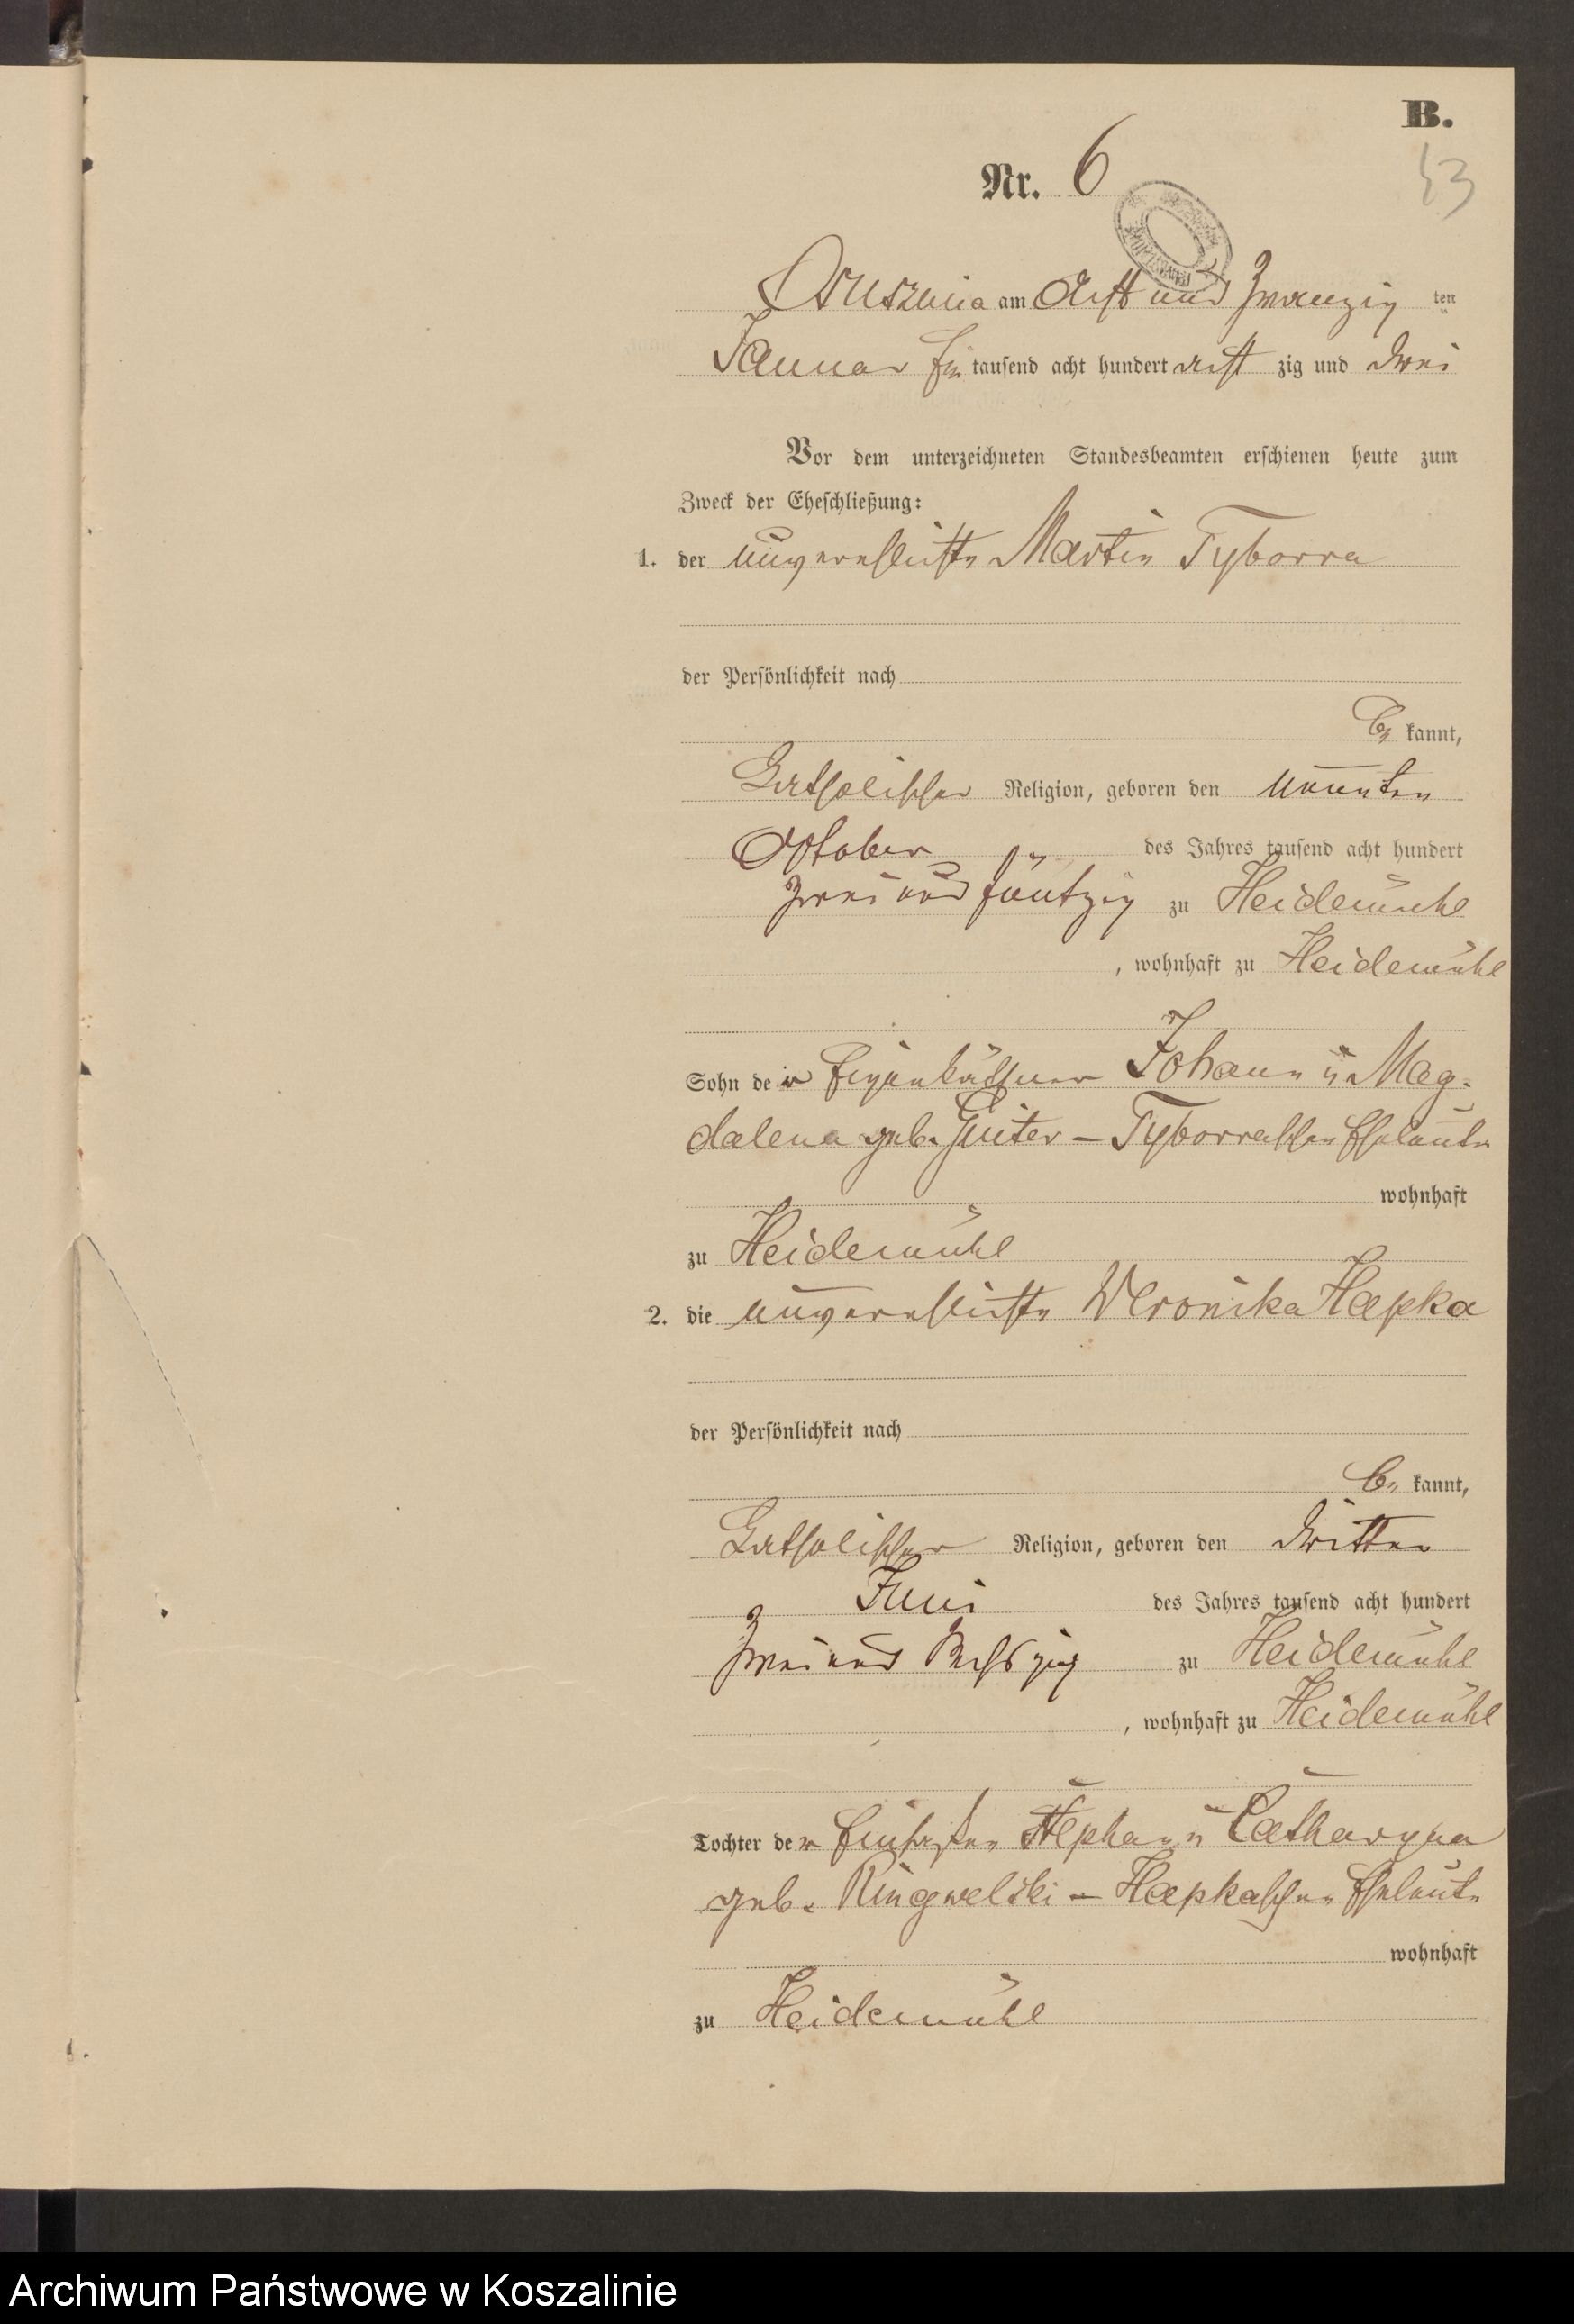 B.
53
Nr. 6
Ossusznica am Acht und Zwanzig ten
Januar Ein tausend acht hundert acht zig und drei
Vor dem unterzeichneten Standesbeamten erschienen heute zum
Zweck der Eheschließung:
1. der unverehlichte Martin Tyborra
der Persönlichkeit nach
be kannt,
Katholischer Religion, geboren den neunten
October des Jahres tausend acht hundert
zwei und fünfzig zu Heidemühl
, wohnhaft zu Heidemühl
Sohn der Eigenkäthner Johann u Mag-
dalena geb. – Tyborraschen Eheleute
wohnhaft
zu Heidemühl
2. die unverehlichte Veronika Hapka
der Persönlichkeit nach
be kannt,
Katholischer Religion, geboren den dritten
Juni des Jahres tausend acht hundert
Zwei und Sechszig zu Heidemühl
, wohnhaft zu Heidemühl
Tochter der Stephan u Catharyna
geb. Ringwelski – Hapkaschen Eheleute
wohnhaft
zu Heidemühl
Archiwum Państwowe w Koszalinie